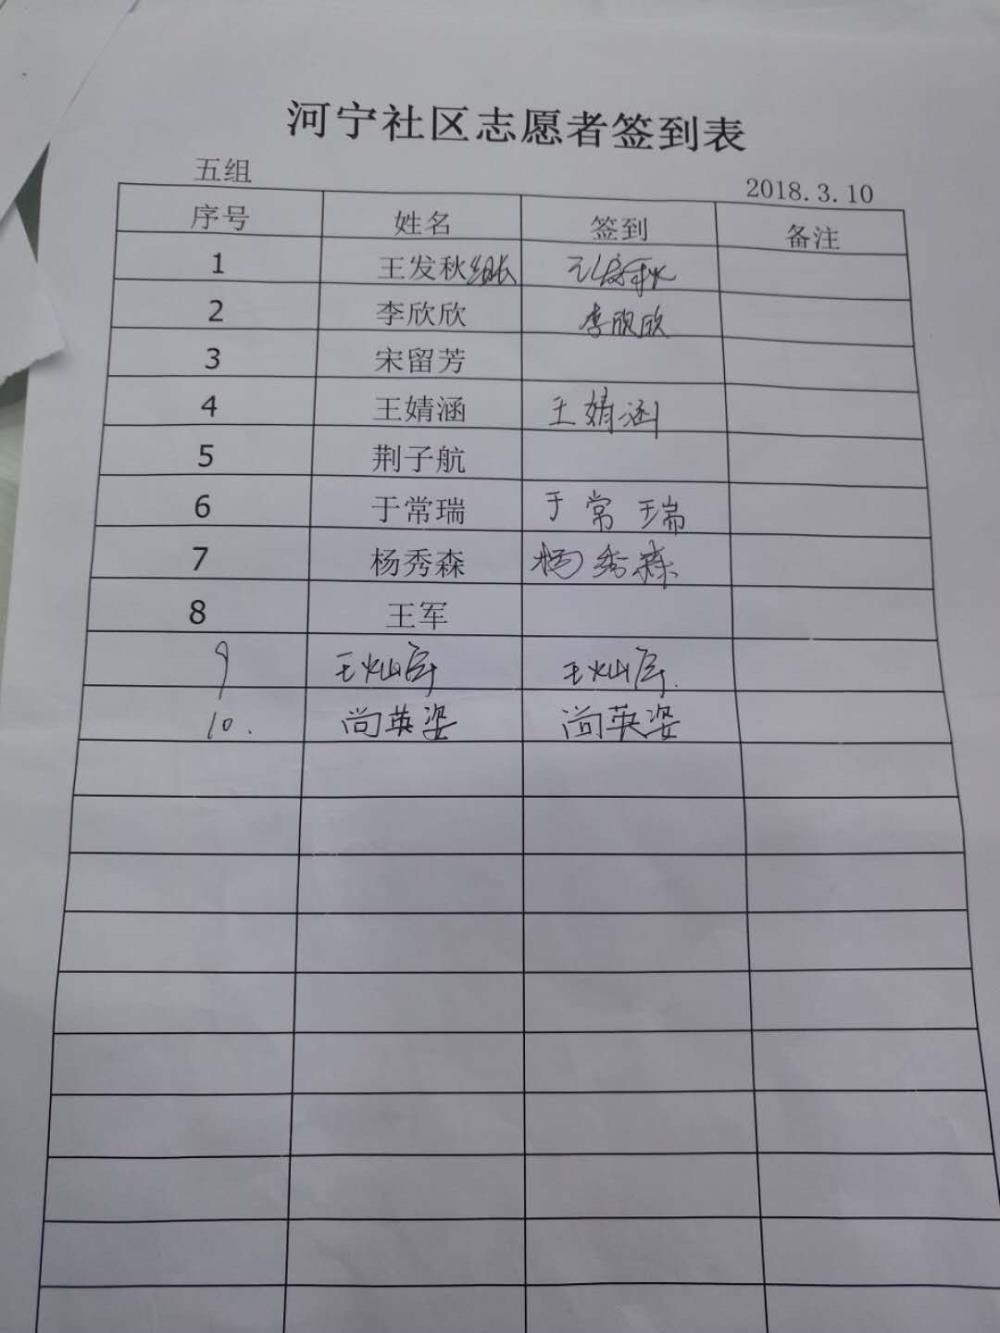 河宁社区志愿者签到表
五组 2018.3.10
序号 姓名 签到 备注
1 王发秋组长 王发秋
2 李欣欣 李欣欣
3 宋留芳
4 王婧涵 王婧涵
5 荆子航
6 于常瑞 于常瑞
7 杨秀森 杨秀森
8 王军
9
10. 尚英姿 尚英姿